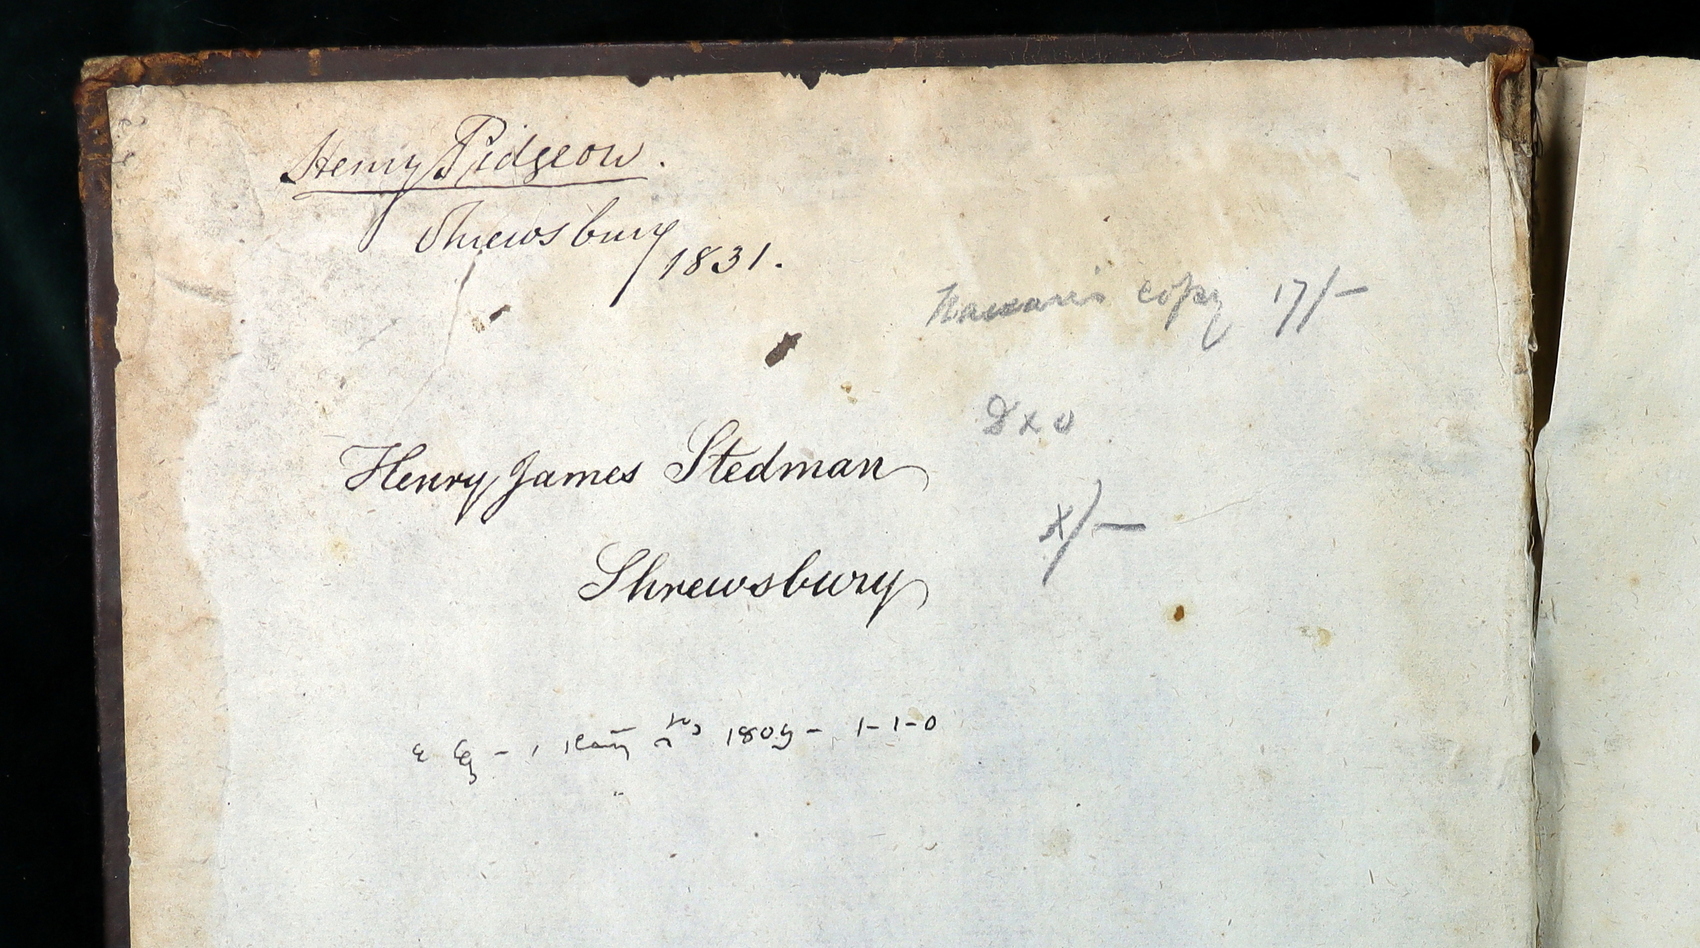 Henry Pidgeon.
Shrewsbury
1831.
copy 17/-
Henry James Stedman
x/-
Shrewsbury
1809 - 1-1-0